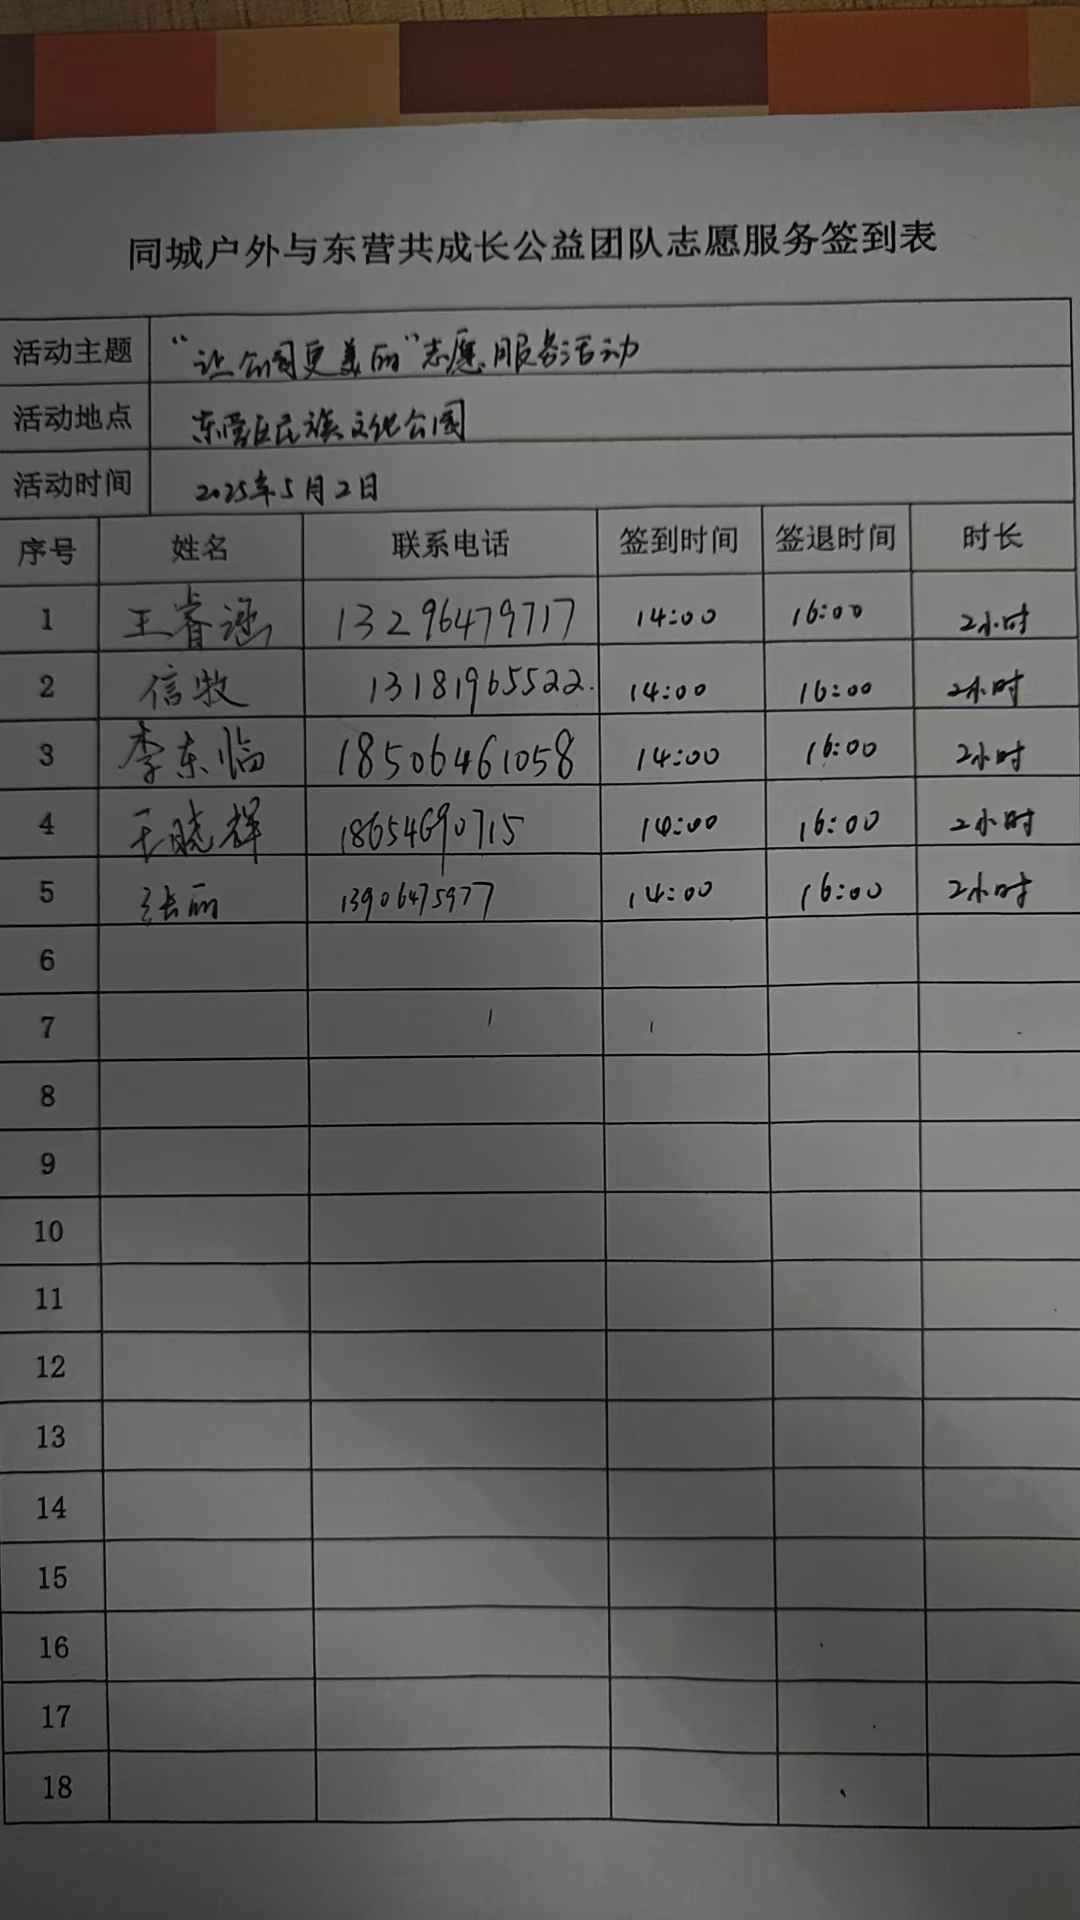 同城户外与东营共成长公益团队志愿服务签到表
活动主题 “让公园更美丽”志愿服务活动
活动地点 东营区民族文化公园
活动时间 2025年5月2日
序号 姓名 联系电话 签到时间 签退时间 时长
1 王睿涵 13296479717 14:00 16:00 2小时
2 信牧 13181965522. 14:00 16:00 2小时
3 李东临 18506461058 14:00 16:00 2小时
4 王晓辉 18654690715 14:00 16:00 2小时
5 张丽 13906475977 14:00 16:00 2小时
6
7
8
9
10
11
12
13
14
15
16
17
18